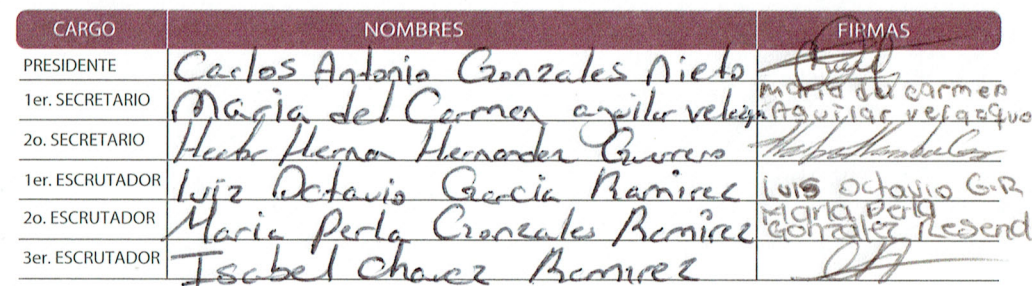 CARGO NOMBRES FIRMAS
PRESIDENTE Carlos Antonio Gonzales Nieto
1er. SECRETARIO Maria del Carmen aguilar velazqu Maria del carmen Aguilar velazquo
2o. SECRETARIO Hector Hernan Hernandez Guerrero
1er. ESCRUTADOR Luiz Octavio Garcia Ramirez Luis Octavio G.R
2o. ESCRUTADOR Maria Perla Gonzales Ramirez Maria Perla González Resend
3er. ESCRUTADOR Isabel Chavez Ramirez